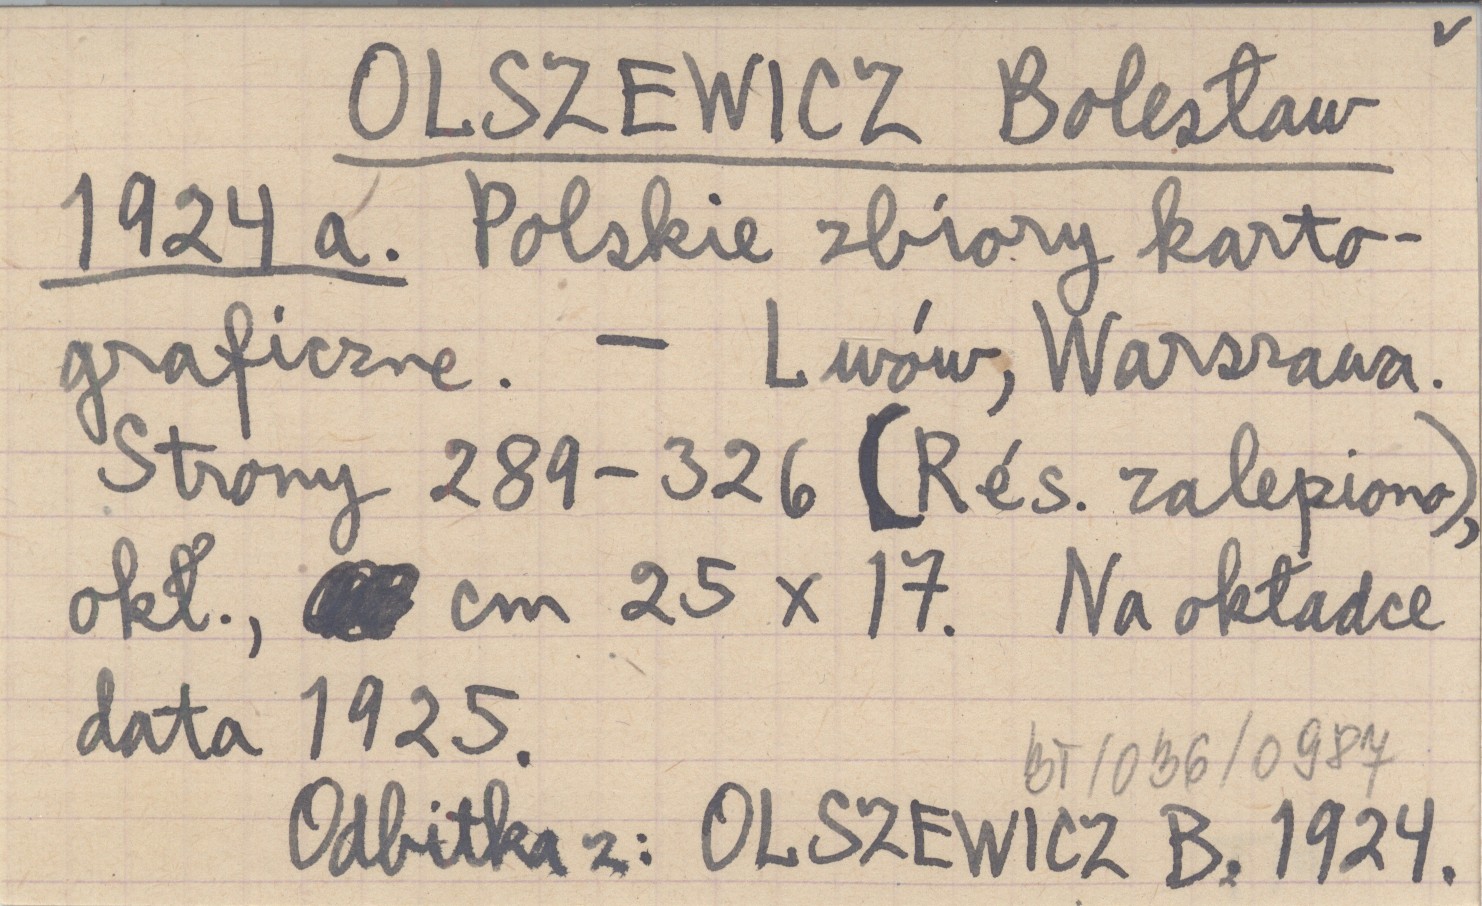 OLSZEWICZ Bolesław
1924 a. Polskie zbiory karto-
graficzne. – Lwów, Warszawa.
Strony 289–326 (Rés. zalepiono),
okł., cm 25 x 17. Na okładce
data 1925.
BT/036/0987
Odbitka z: OLSZEWICZ B. 1924.